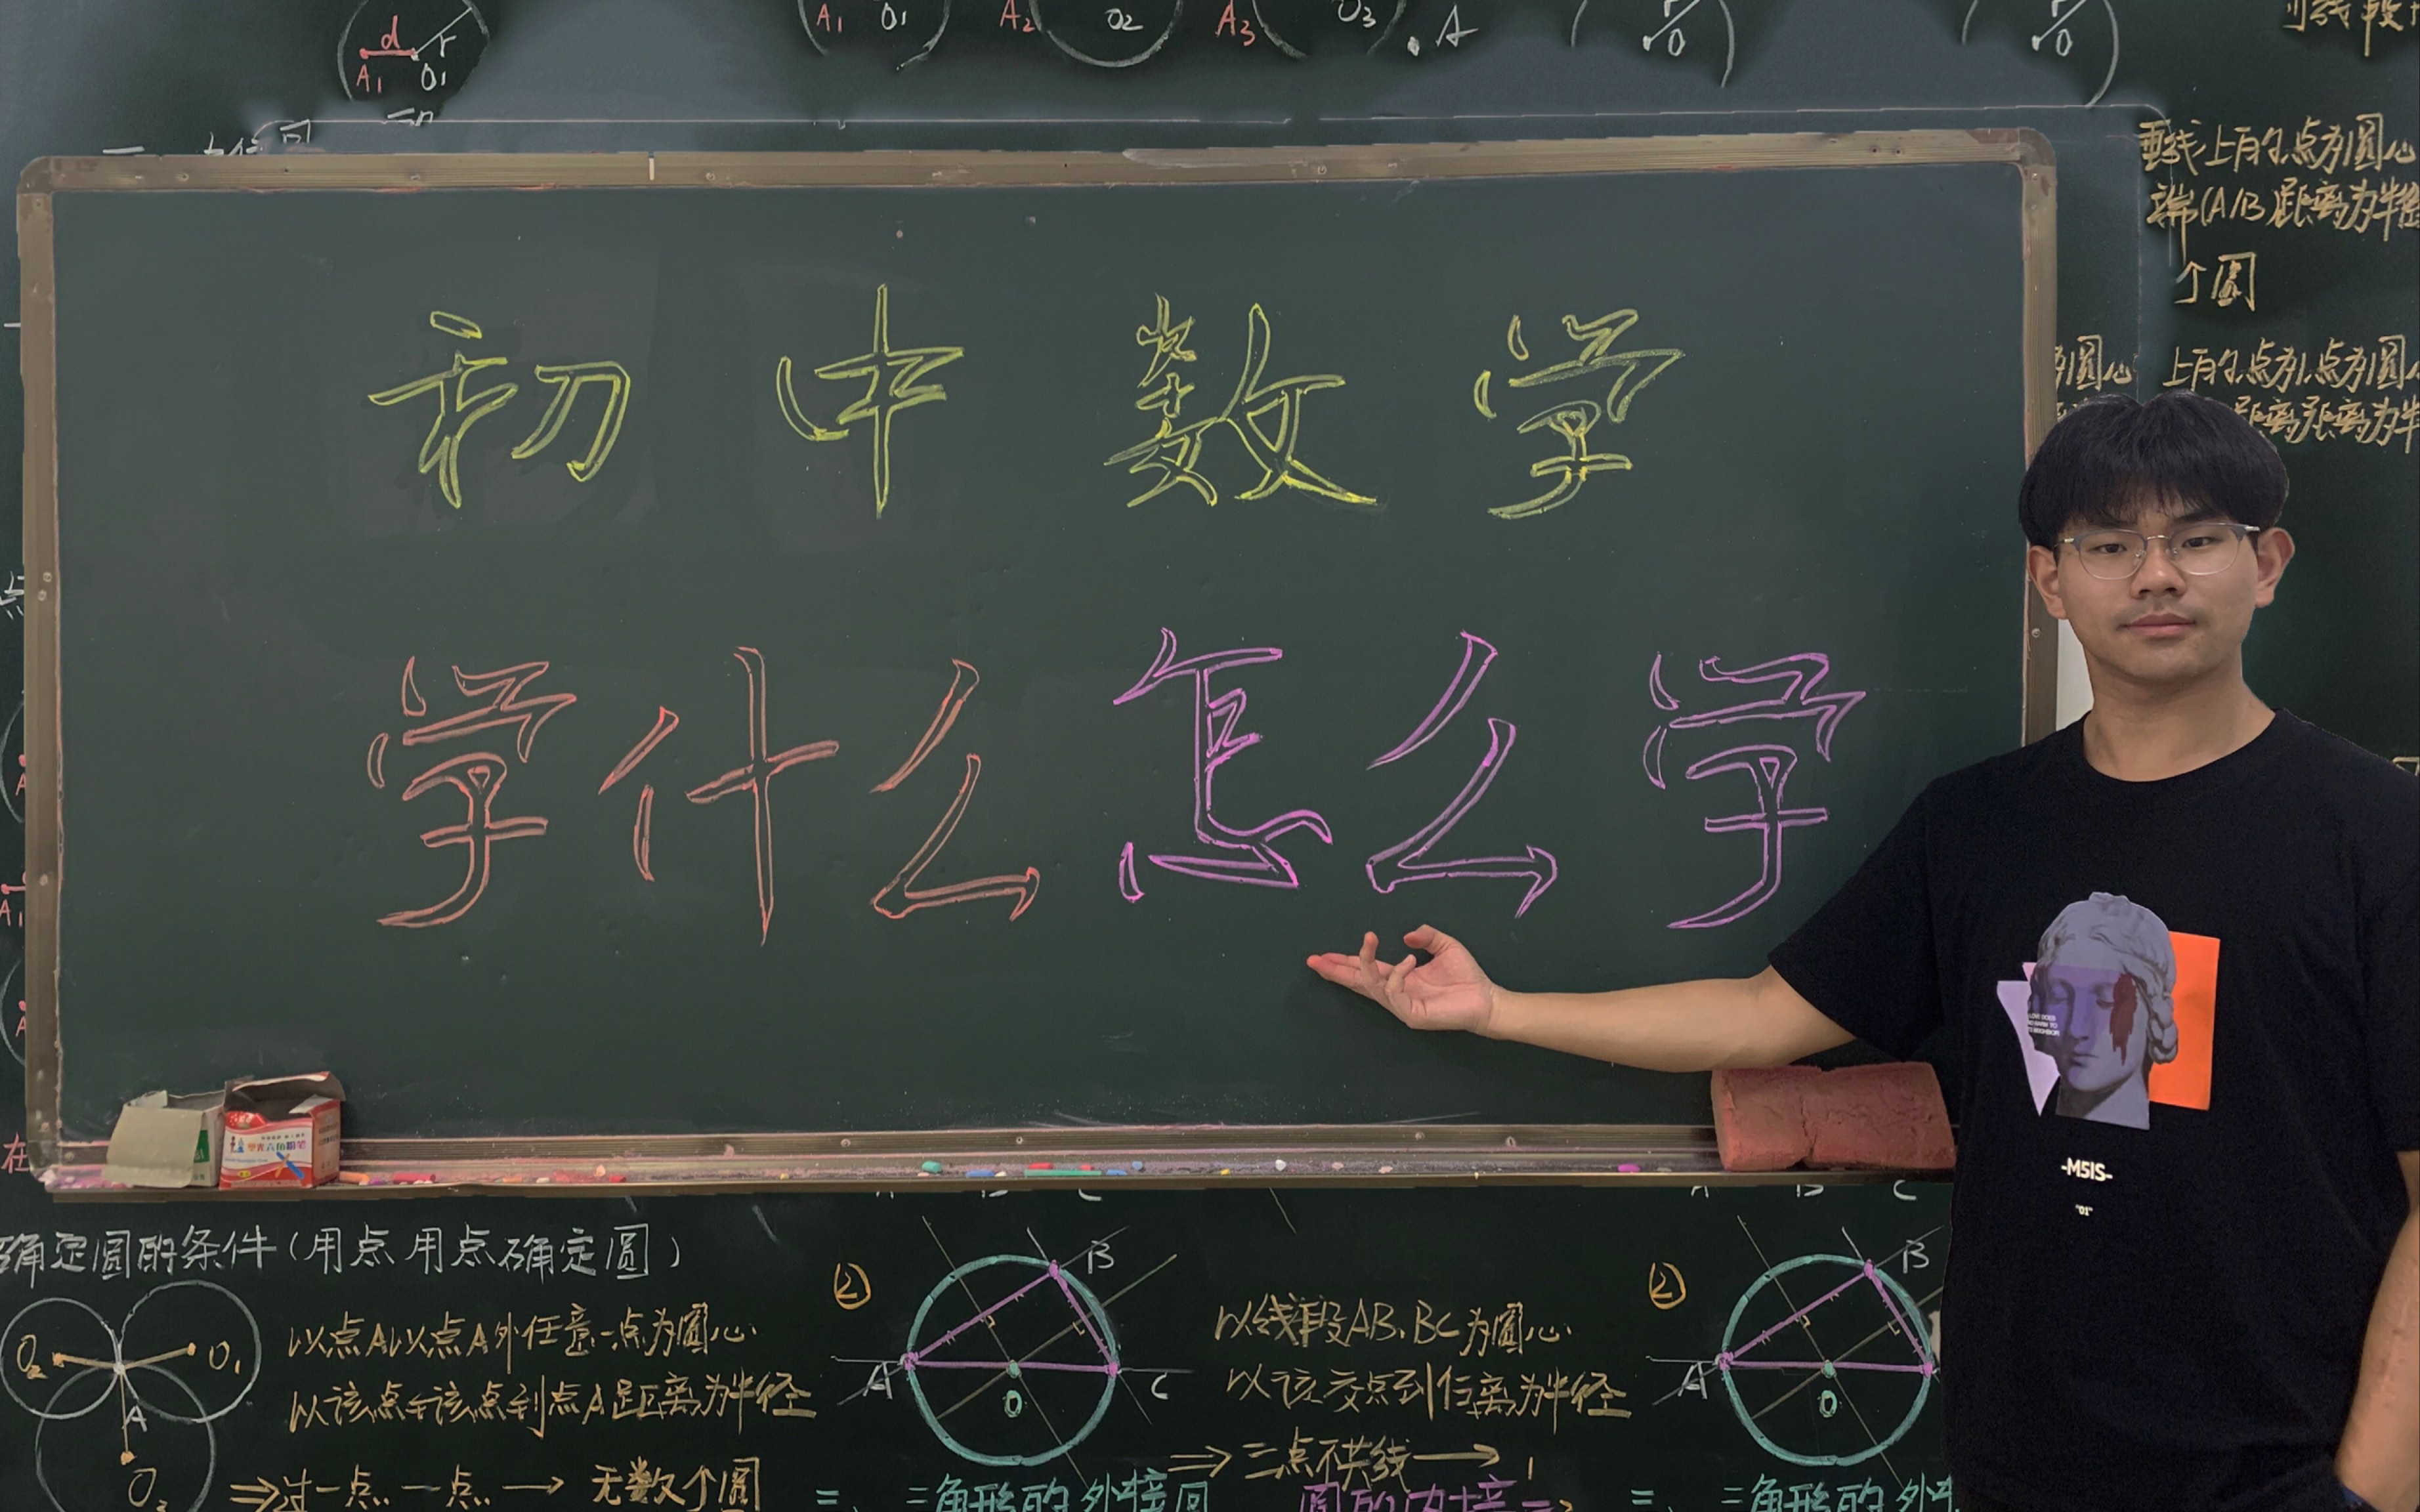 d r
A₁ O₁
A₁ O₁
A₂ O₂
A₃ O₃
A
r
O
r
O
垂线上的点为圆心
端(A/B)距离为半径
个圆
初中数学
学什么怎么学
上的点为点为圆心
距离距离为半
确定圆的条件(用点用点确定圆)
O₂ O₁
A
以点A以点A外任意一点为圆心.
以该点到该点到点A距离为半径
⇒过一点.一点.→无数个圆
② B
A C
O
以线段AB、BC为圆心.
⇒三点不共线→1
二、三角形的外接圆
② B
A
O
二、三角形的外
LOVE DOES
NO HARM TO
-M5IS-
"01"